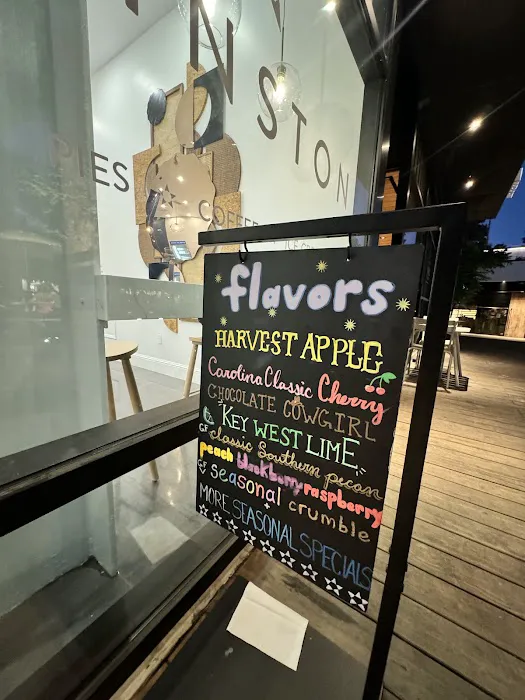 N
STON
PIES
COFFEE
flavors
HARVEST APPLE
Carolina Classic Cherry
CHOCOLATE COWGIRL
KEY WEST LIME
GF classic Southern pecan
peach blackberry raspberry
GF seasonal crumble
MORE SEASONAL SPECIALS